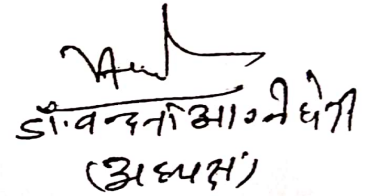 डॉ. वन्दना अग्निहोत्री
(अध्यक्ष)